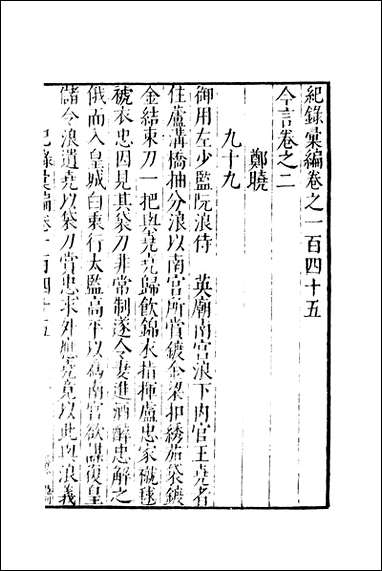 紀錄彙編卷之一百四十五
今言卷之二
鄭曉
九十九
御用左少監阮浪侍　英廟南宮浪下內官王堯者
住盧溝橋抽分浪以南宮所賞鍍金梁扣綉茄袋鍍
金結束刀一把與堯堯歸飲錦衣指揮盧忠家蹴毬
褫衣忠因見其袋刀非常制遂令妻進酒醉忠解之
俄而入皇城白東行太監高平以為南宮欲謀復皇
儲令浪遺堯以袋刀賞忠求外應堯竟以此與浪義
紀錄彙編卷一百四十五